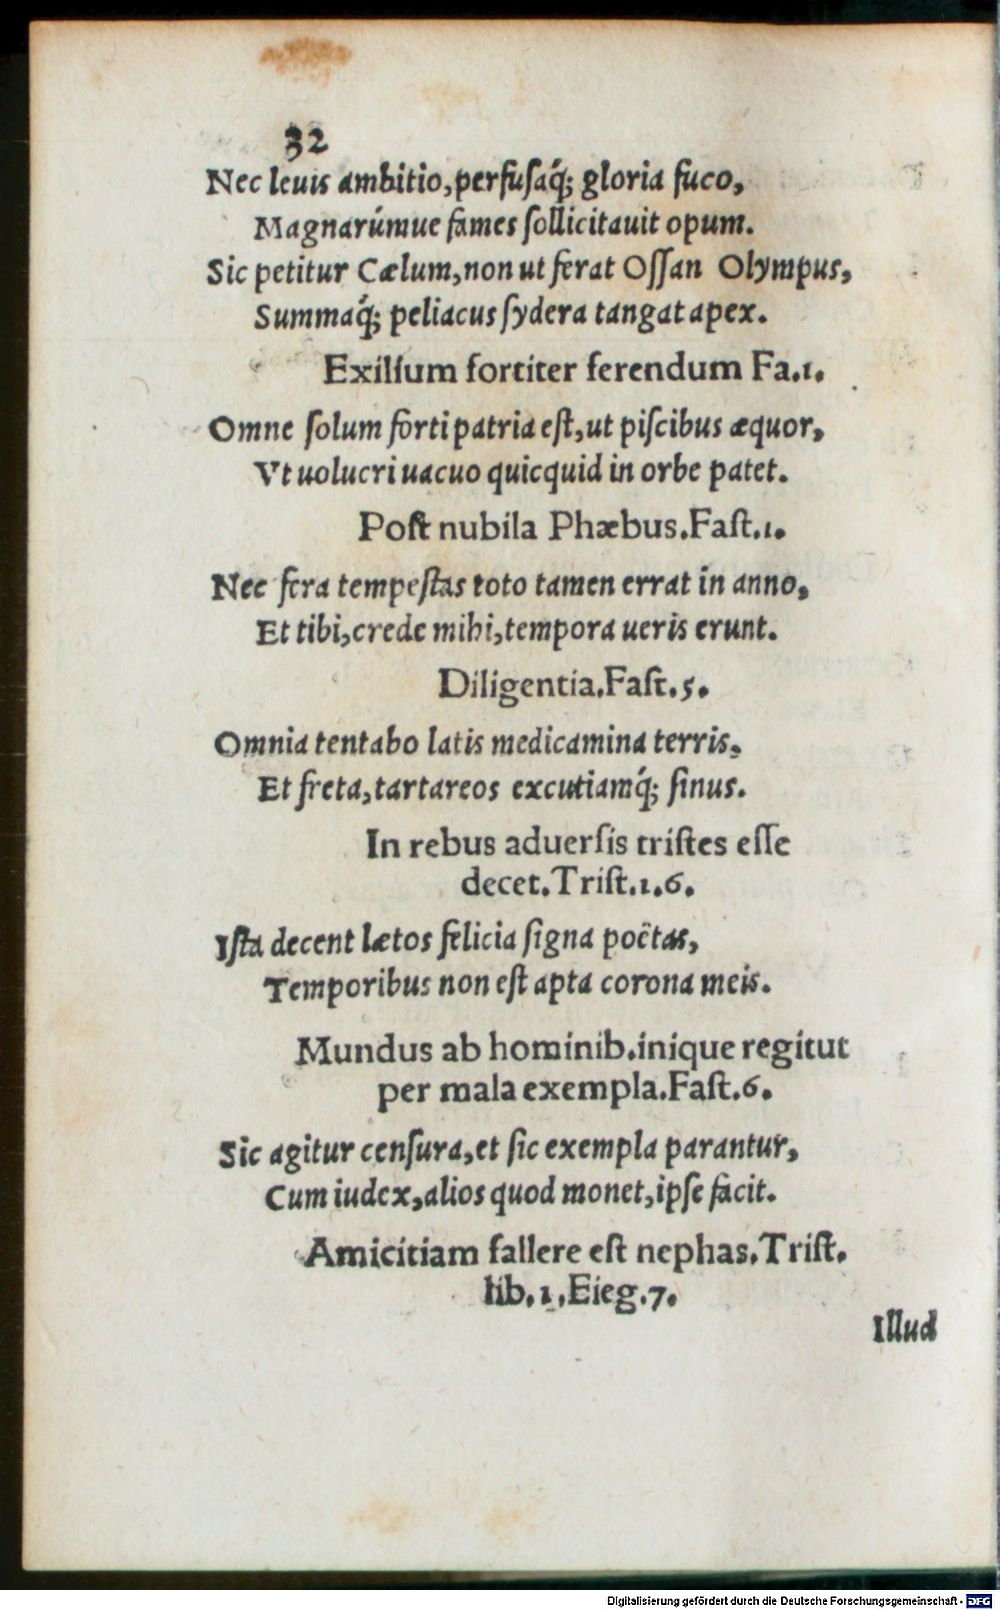 32
Nec leuis ambitio, perfusaq́; gloria fuco,
Magnarúmue fames sollicitauit opum.
Sic petitur Cælum, non ut ferat Ossan Olympus,
Summaq́; peliacus sydera tangat apex.
Exilium fortiter ferendum Fa.1.
Omne solum forti patria est, ut piscibus æquor,
Vt uolucri uacuo quicquid in orbe patet.
Post nubila Phæbus. Fast.1.
Nec fera tempestas toto tamen errat in anno,
Et tibi, crede mihi, tempora ueris erunt.
Diligentia. Fast.5.
Omnia tentabo latis medicamina terris.
Et freta, tartareos excutiamq́; sinus.
In rebus aduersis tristes esse
decet. Trist.1.6.
Ista decent lætos felicia signa poëtas,
Temporibus non est apta corona meis.
Mundus ab hominib. inique regitut
per mala exempla. Fast.6.
Sic agitur censura, et sic exempla parantur,
Cum iudex, alios quod monet, ipse facit.
Amicitiam fallere est nephas. Trist.
lib.1. Eieg.7.
Illud
Digitalisierung gefördert durch die Deutsche Forschungsgemeinschaft - DFG